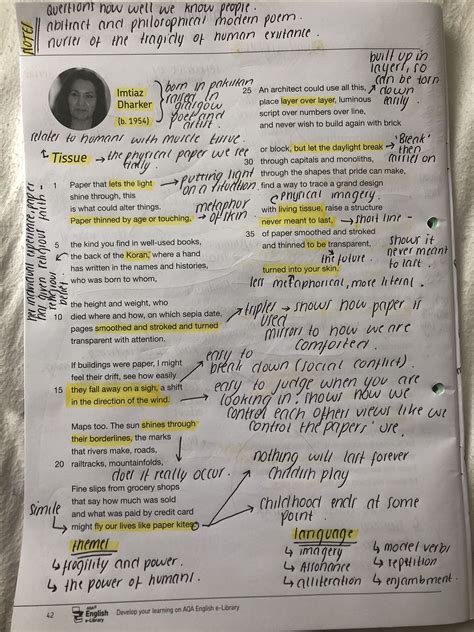 NOTES
questions how well we know people.
abstract and philosophical modern poem.
nurser of the tragidy of human existance.
Imtiaz
Dharker
(b. 1954)
born in pakistan
raised in
glasgow
poet and
artist.
relates to humans with muscle tissue
Tissue → the physical paper we see
1 Paper that lets the light
shine through, this
is what could alter things.
Paper thinned by age or touching,
putting light
on a situation
metaphor
of skin.
5 the kind you find in well-used books,
the back of the Koran, where a hand
has written in the names and histories,
who was born to whom,
the height and weight, who
10 died where and how, on which sepia date,
pages smoothed and stroked and turned
transparent with attention.
triples → shows how paper is
used
mirror to how we are
comforted.
If buildings were paper, I might
feel their drift, see how easily
15 they fall away on a sigh, a shift
in the direction of the wind.
easy to
break down (social conflict).
easy to judge when you are
looking in: shows how we
control each others views like we
control the papers' use.
Maps too. The sun shines through
their borderlines, the marks
that rivers make, roads,
20 railtracks, mountainfolds,
does it really occur.
Fine slips from grocery shops
that say how much was sold
and what was paid by credit card
might fly our lives like paper kites.
simile
nothing will last forever
childish play
childhood ends at some
point.
25 An architect could use all this,
place layer over layer, luminous
script over numbers over line,
and never wish to build again with brick
built up in
layers, so
can be torn
down
easily.
or block, but let the daylight break
30 through capitals and monoliths,
through the shapes that pride can make,
find a way to trace a grand design
'Break'
then
carries on
physical imagery
with living tissue, raise a structure
never meant to last,
35 of paper smoothed and stroked
and thinned to be transparent,
short line -
shows it
never meant
to last.
the future.
turned into your skin.
less metaphorical, more literal.
themes
↳ fragility and power.
↳ the power of humans.
language
↳ imagery
↳ Assonance
↳ alliteration
↳ model verbs
↳ repitition
↳ enjambment.
42
AQA
English
e-Library
Develop your learning on AQA English e-Library